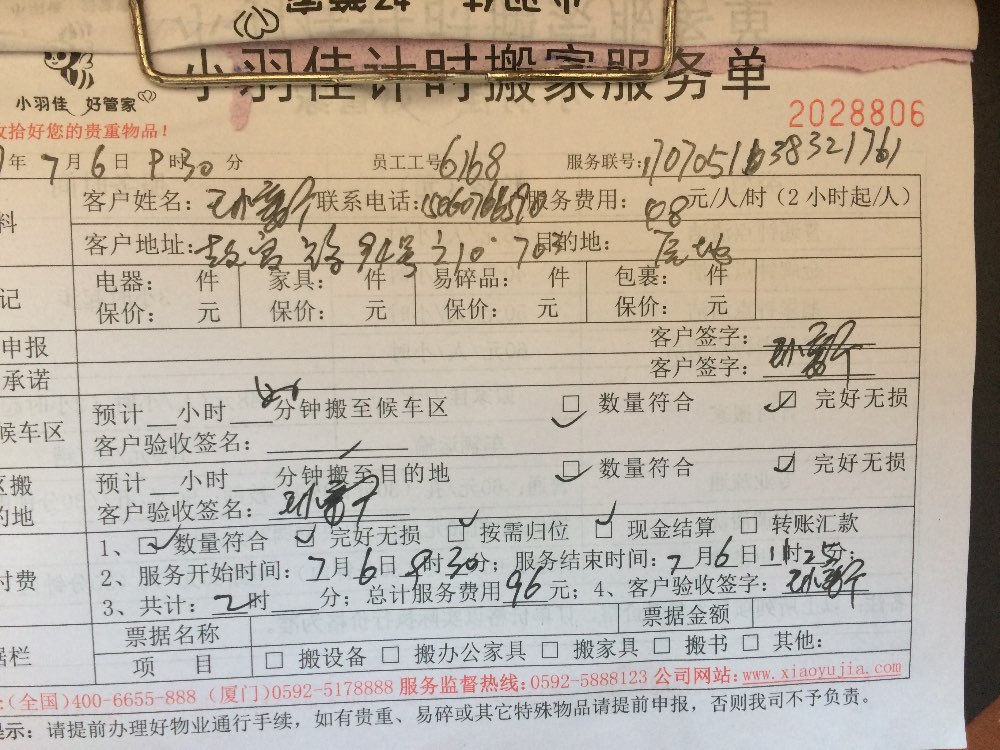 小羽佳 好管家
小羽佳计时搬家服务单
2028806
收拾好您的贵重物品!
年7月6日9时30分 员工工号6168 服务联号:
客户姓名: 联系电话: 服务费用:48元/人/时(2小时起/人)
客户地址: 94号 目的地:
电器: 件 家具: 件 易碎品: 件 包裹: 件
保价: 元 保价: 元 保价: 元 保价: 元
申报 客户签字:
承诺 客户签字:
预计__小时__分钟搬至候车区 数量符合 完好无损
候车区 客户验收签名:
区搬 预计__小时__分钟搬至目的地 数量符合 完好无损
的地 客户验收签名:
1、数量符合 完好无损 按需归位 现金结算 转账汇款
付费 2、服务开始时间:7月6日9时30分;服务结束时间:7月6日11时25分;
3、共计:2时__分;总计服务费用96元;4、客户验收签字:
票据名称 票据金额
据栏 项 目 搬设备 搬办公家具 搬家具 搬书 其他:
:(全国)400-6655-888(厦门)0592-5178888 服务监督热线:0592-5888123 公司网站:www.xiaoyujia.com
提示:请提前办理好物业通行手续,如有贵重、易碎或其它特殊物品请提前申报,否则我司不予负责。